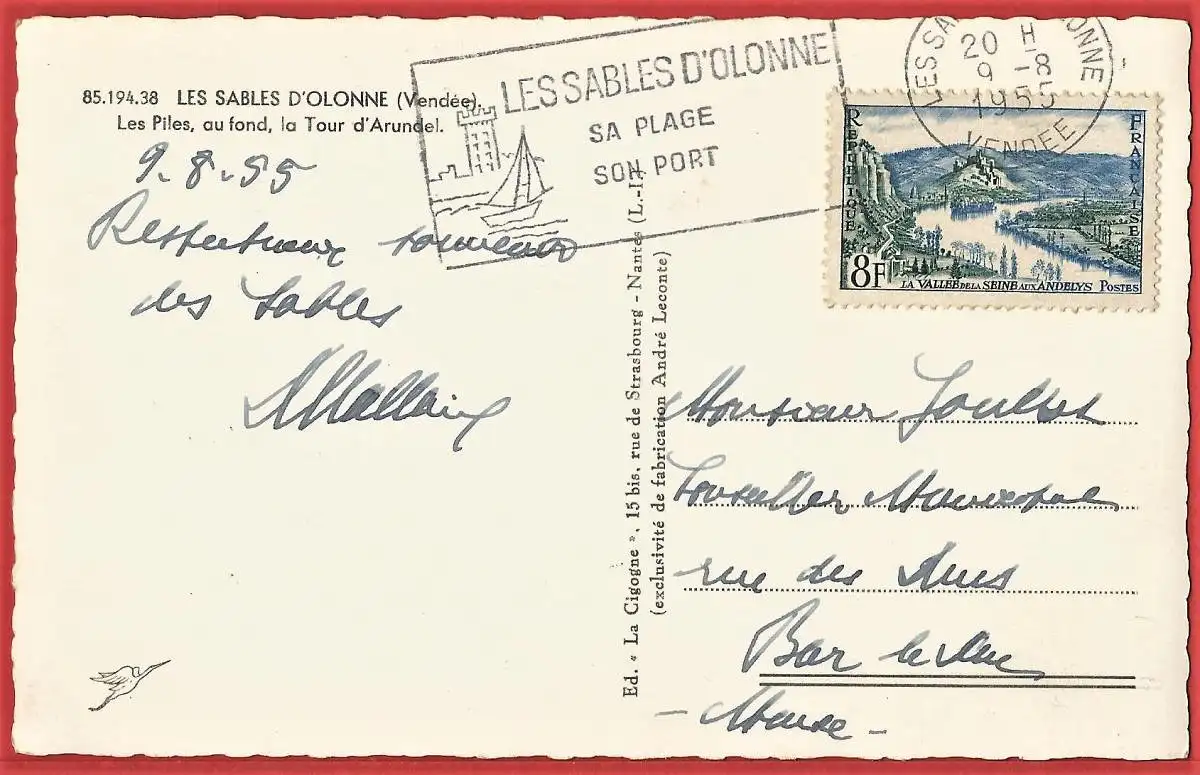 85.194.38 LES SABLES D'OLONNE (Vendée).
Les Piles, au fond, la Tour d'Arundel.
9.8.55
Respectueux souvenirs
des Sables
LES SABLES D'OLONNE
SA PLAGE
SON PORT
LES SA ONNE
20 H
9 -8
1955
VENDEE
REPUBLIQUE
FRANCAISE
8F
LA VALLEE DE LA SEINE AUX ANDELYS POSTES
Ed. « La Cigogne », 15 bis, rue de Strasbourg - Nantes (L.-I)
(exclusivité de fabrication André Leconte)
Monsieur
Conseiller Municipal
rue des
Bar le Duc
- Meuse -